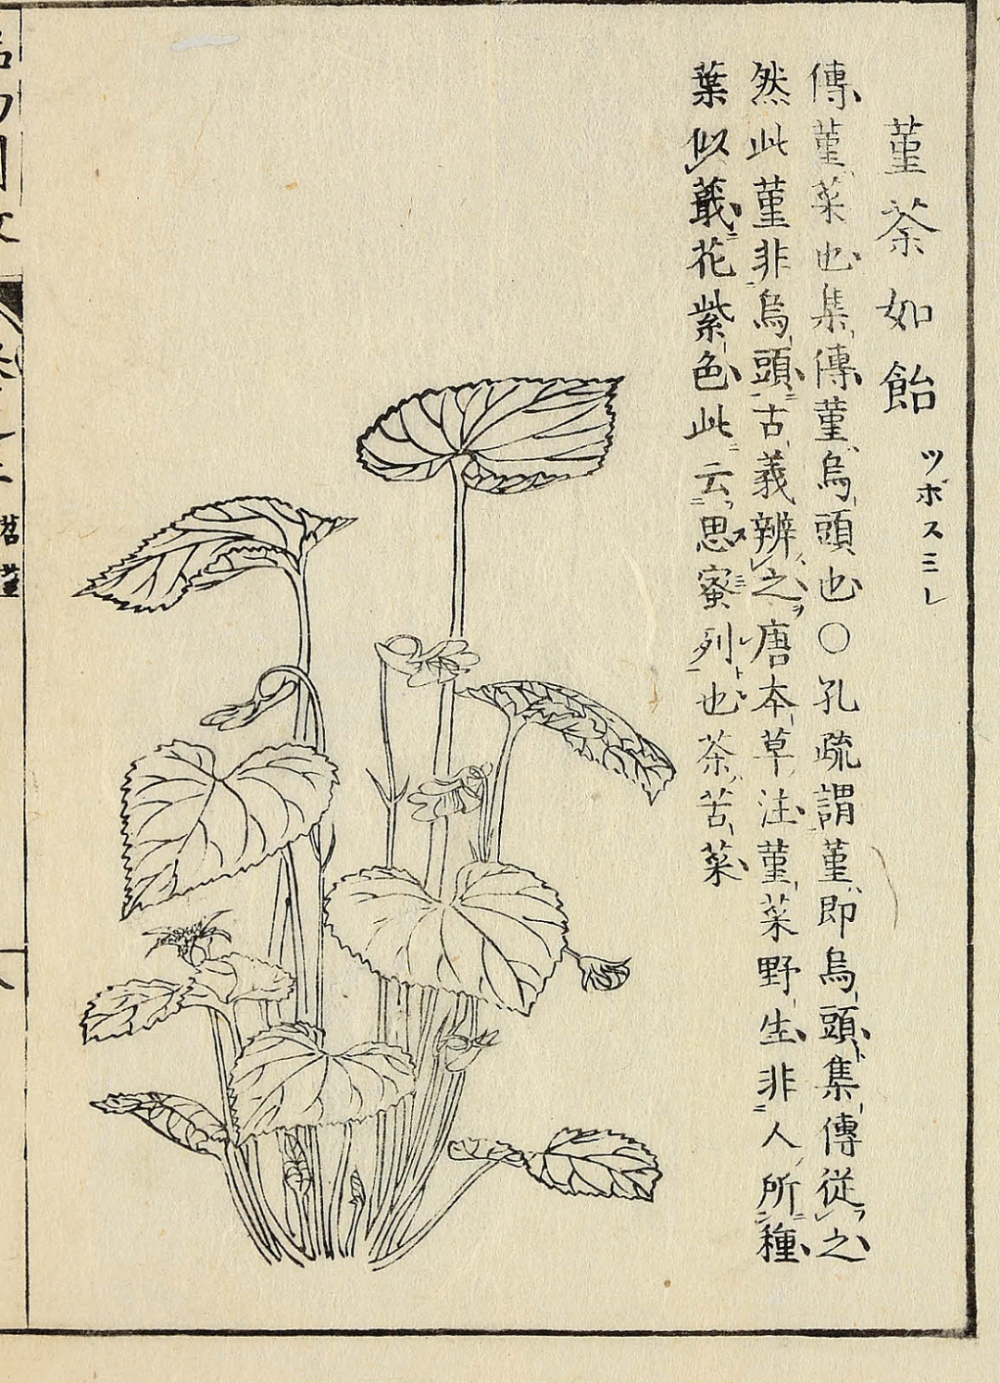 菫荼如飴 ツボスミレ
傳菫菜也集傳菫烏頭也〇孔疏謂菫即烏頭集傳從之
然此菫非烏頭古義辨之唐本草注菫菜野生非人所種
葉似蕺花紫色此云思蜜列也荼苦菜